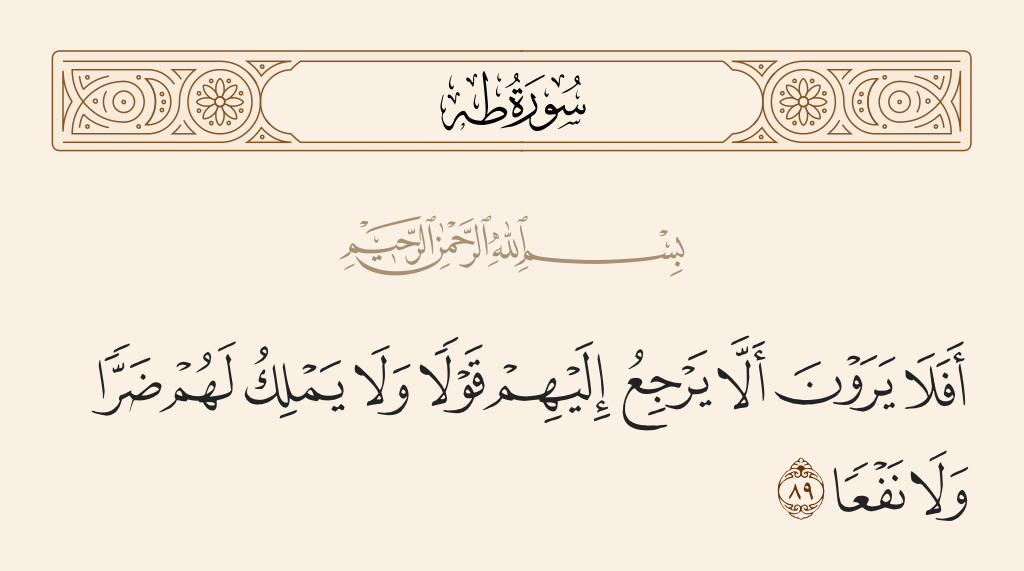 سُورَةُ طه
بِسْمِ ٱللَّهِ ٱلرَّحْمَٰنِ ٱلرَّحِيمِ
أَفَلَا يَرَوْنَ أَلَّا يَرْجِعُ إِلَيْهِمْ قَوْلًا وَلَا يَمْلِكُ لَهُمْ ضَرًّا
وَلَا نَفْعًا ٨٩